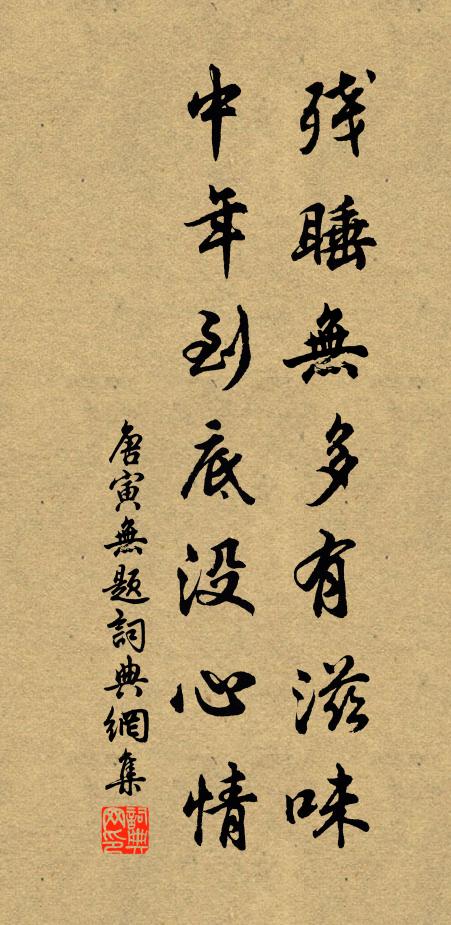 残睡無多有滋味
中年到底没心情
唐寅無题詞典網集
詞典网印